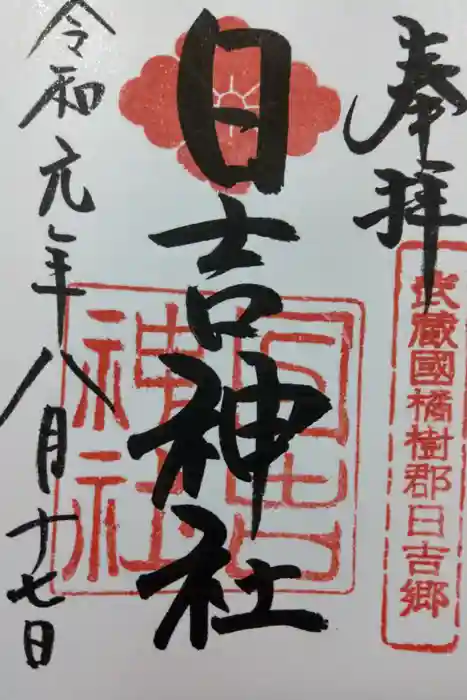 奉拝
武蔵國橘樹郡日吉郷
日吉神社
日吉神社
令和元年八月十七日